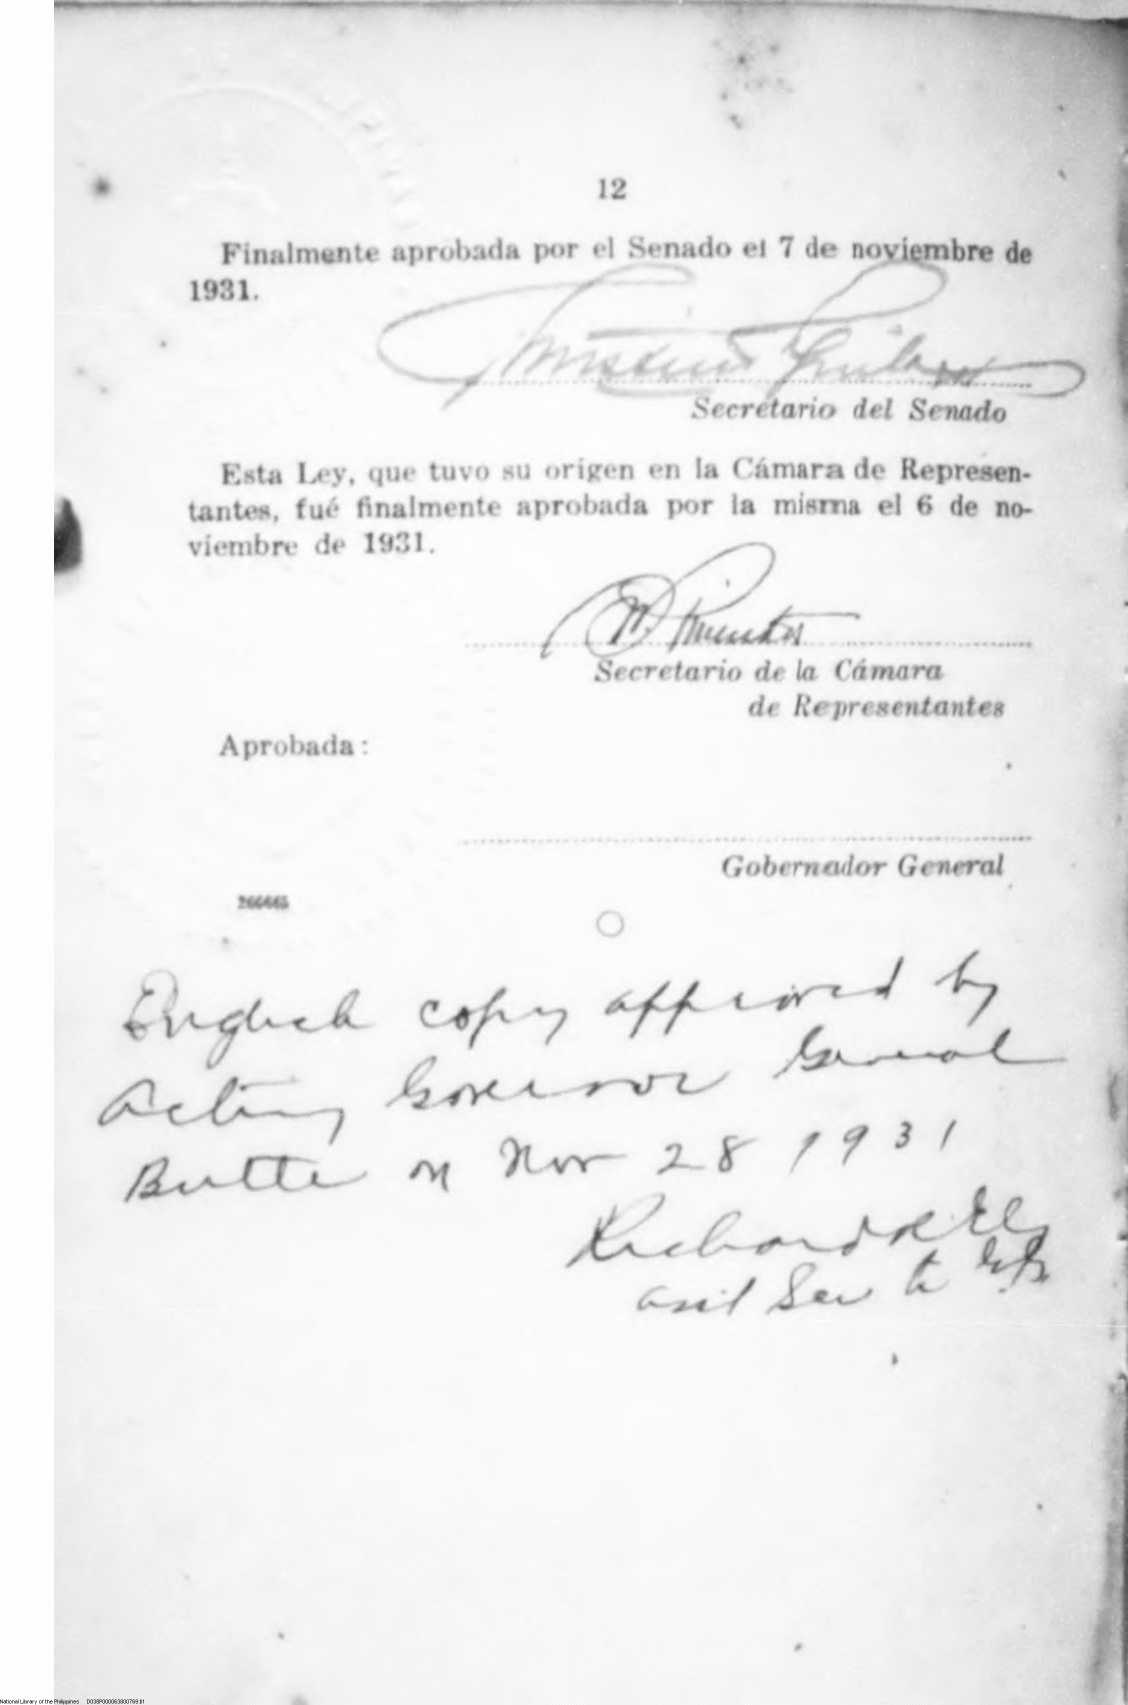 12
Finalmente aprobada por el Senado el 7 de noviembre de
1931.
Secretario del Senado
Esta Ley, que tuvo su origen en la Cámara de Represen-
tantes, fué finalmente aprobada por la misma el 6 de no-
viembre de 1931.
Secretario de la Cámara
de Representantes
Aprobada:
Gobernador General
266665
English copy approved by
Acting Governor General
Butte on Nov 28 1931
Richard R Ely
asst Sec to
National Library of the Philippines